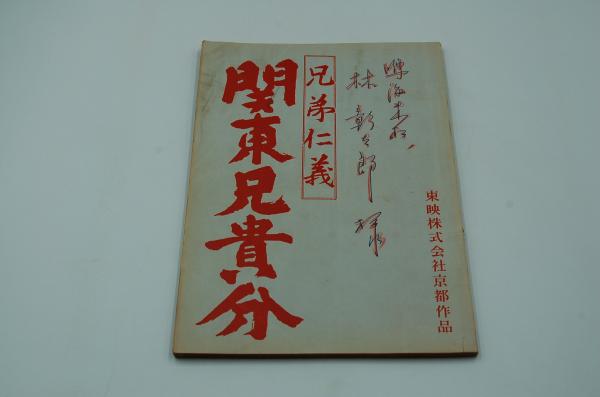 東映株式会社京都作品
林 彰太郎 様
兄弟仁義
関東兄貴分